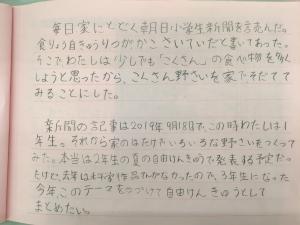 毎日家にとどく朝日小学生新聞を読んだ。
食りょう自きゅうりつがかこさいていだと書いてあった。
そこで、わたしは少しでも「こくさん」の食べ物を多く
しようと思ったから、こくさん野さいを家でそだてて
みることにした。
新聞の記事は2019年9月18日で、この時わたしは1
年生。それから家のはたけでいろいろな野さいをつくって
みた。本当は2年生の夏の自由けんきゅうで発表する予定だっ
たけど、去年は作品てんがなかったので、3年生になった
今年、このテーマをつづけて自由けんきゅうとして
まとめたい。